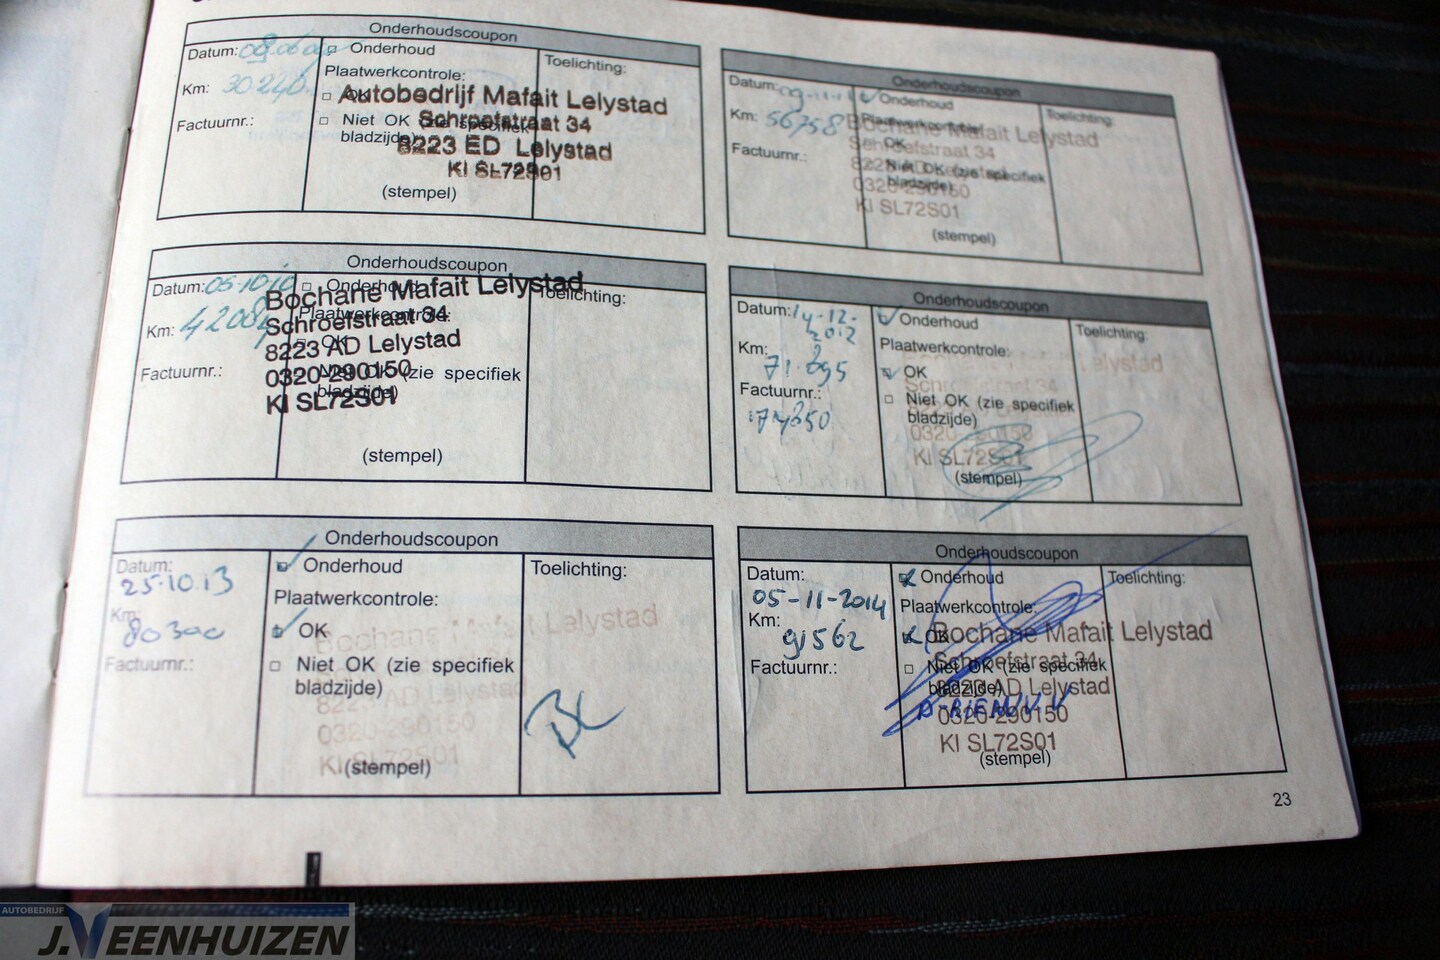 Onderhoudscoupon
Datum:
Onderhoud
Toelichting:
Km: 30240
Plaatwerkcontrole:
OK
Autobedrijf Mafait Lelystad
Factuurnr.:
Niet OK (zie specifiek
bladzijde)
Schroefstraat 34
8223 ED Lelystad
KI SL72S01
(stempel)
Onderhoudscoupon
Datum:
Onderhoud
Toelichting:
Km: 56758
Plaatwerkcontrole:
OK
Factuurnr.:
Niet OK (zie specifiek
bladzijde)
Bochane Mafait Lelystad
Schroefstraat 34
8223 AD Lelystad
0320-290150
KI SL72S01
(stempel)
Onderhoudscoupon
Datum: 05.10.10
Onderhoud
Toelichting:
Km:
Plaatwerkcontrole:
OK
Factuurnr.:
Niet OK (zie specifiek
bladzijde)
Bochane Mafait Lelystad
Schroefstraat 34
8223 AD Lelystad
0320-290150
KI SL72S01
(stempel)
Onderhoudscoupon
Datum: 14-12-
2012
Onderhoud
Toelichting:
Km:
71.895
Plaatwerkcontrole:
OK
Factuurnr.:
Niet OK (zie specifiek
bladzijde)
Lelystad
Schroefstraat 34
0320-290150
KI SL72S01
(stempel)
Onderhoudscoupon
Datum:
25.10.13
Onderhoud
Toelichting:
Km:
80300
Plaatwerkcontrole:
OK
Factuurnr.:
Niet OK (zie specifiek
bladzijde)
Bochane Mafait Lelystad
8223 AD Lelystad
0320-290150
KI SL72S01
(stempel)
Onderhoudscoupon
Datum:
05-11-2014
Onderhoud
Toelichting:
Km:
91562
Plaatwerkcontrole:
OK
Factuurnr.:
Niet OK (zie specifiek
bladzijde)
Bochane Mafait Lelystad
Schroefstraat 34
8223 AD Lelystad
0320-290150
KI SL72S01
(stempel)
23
AUTOBEDRIJF
J. VEENHUIZEN